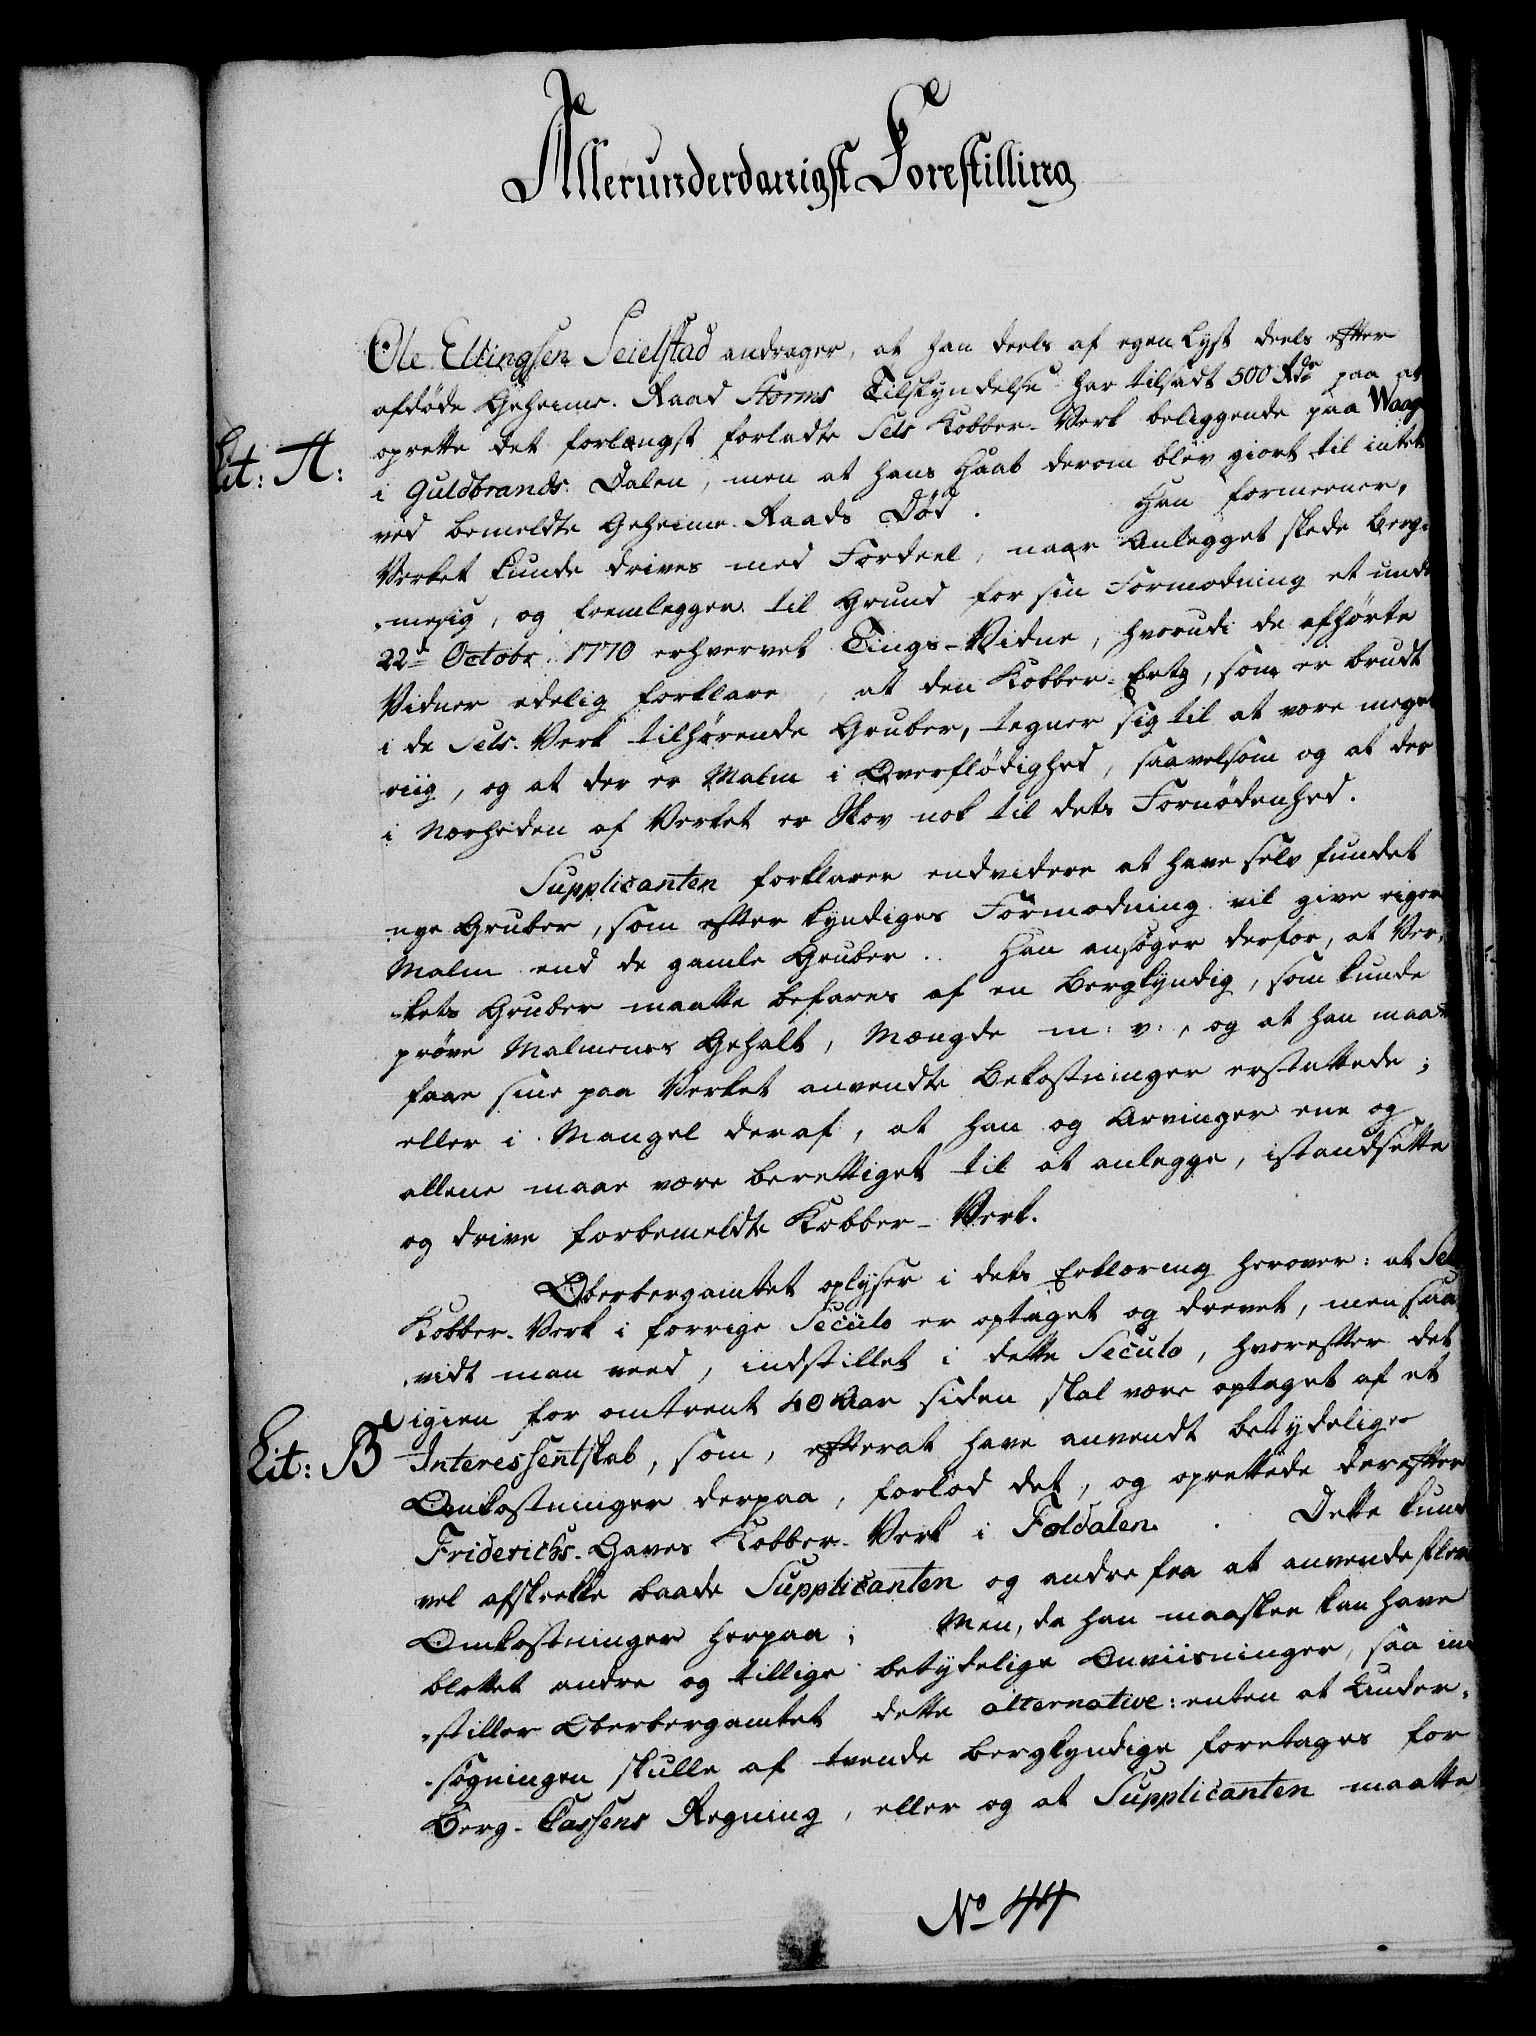 Allerunderdanigst Forestilling
Ole Ellingsen Seielstad andrager, at han deels af egen Lyst deels efter
afdöde Geheime-Raad Storms Tilskyndelse har tilsadt 500 Rdr paa at
oprette det forlængst forladte Sels Kobber-Verk beliggende paa Waage
Lit: A:
i Guldbrands-Dalen, men at hans Haab derom blev giort til intet
ved bemeldte Geheime-Raads Död. Han formeener,
Verket kunde drives med Fordeel, naar Anlægget skede berg-
-mesig, og fremlegger til Grund for sin Formodning et under
22de Octobr 1770 erhvervet Tings-Vidne, hvorudi de afhörte
Vidner edelig forklare, at den Kobber-Ertz, som er brudt
i de Sels-Verk tilhörende Gruber, tegner sig til at være meget
riig, og at der er Malm i Overflödighed, saavelsom og at der
i Nærheden af Verket er Skov nok til dets Fornödenhed.
Supplicanten forklarer endvidere at have selv fundet
nye Gruber, som efter kyndiges Formodning vil give rigere
Malm end de gamle Gruber. Han ansöger derfor, at Ver-
-kets Gruber maatte befares af en Bergkyndig, som kunde
pröve Malmenes Gehalt, Mængde m: v:, og at han maatte
faae sine paa Verket anvendte Bekostninger erstattede;
eller i Mangel deraf, at han og Arvinger ene og
allene maae være berettiget til at anlegge, istandsette
og drive forbemeldte Kobber-Verk.
Oberbergamtet oplyser i dets Erklæring herover: at Sels
Kobber-Verk i forrige Seculo er optaget og drevet, men saa
vidt man veed, indstillet i dette Seculo, hvorefter det
igien for omtrent 40 Aar siden skal være optaget af et
Lit: B
Interessentskab, som, efterat have anvendt betydelige
Omkostninger derpaa, forlod det, og oprettede derefter
Friderichs-Gaves Kobber-Verk i Foldalen. Dette kunde
vel afskrekke baade Supplicanten og andre fra at anvende flere
Omkostninger herpaa; Men, da han maaskee kan have
blottet andre og tillige betydelige Anviisninger, saa ind-
-stiller Oberbergamtet dette alternative: enten at Under-
-sögningen skulle af tvende Bergkyndige foretages for
Berg-Cassens Regning, eller og at Supplicanten maatte
No 44